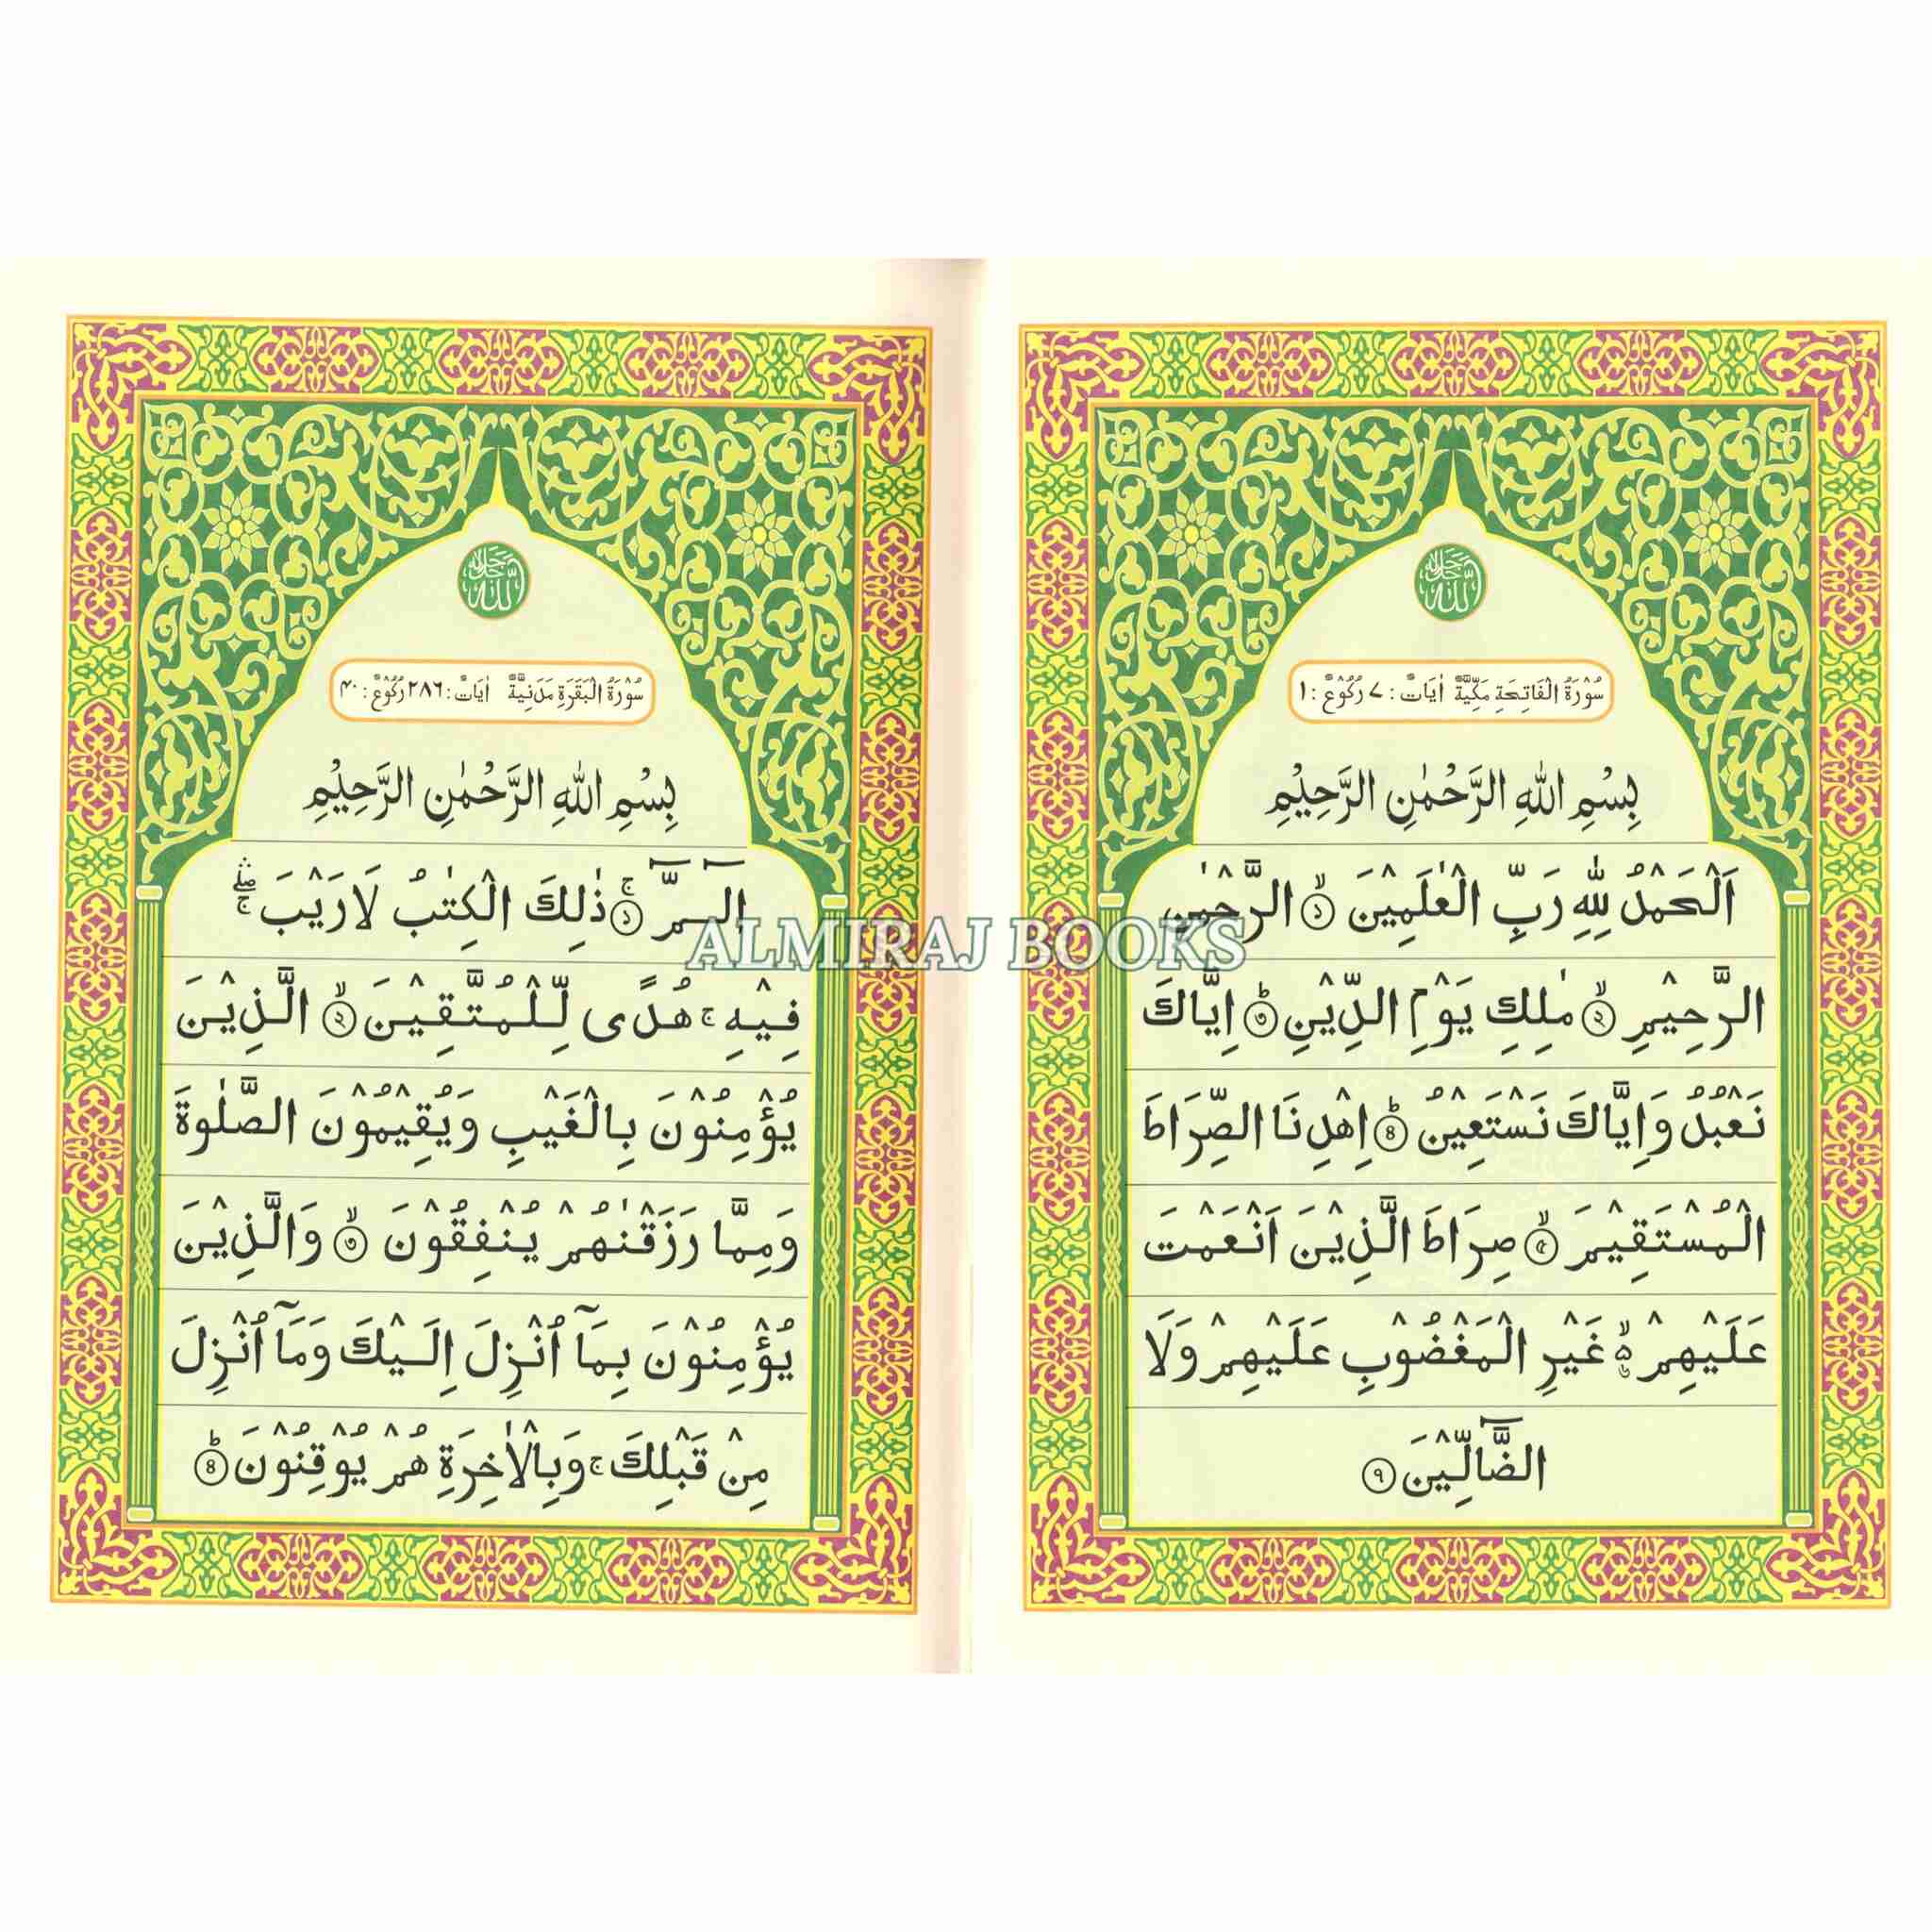 سُوْرَةُ الْفَاتِحَةِ مَكِّيَّةٌ اٰيَاتٌ : ٧ رُكُوْعٌ : ١
بِسْمِ اللّٰهِ الرَّحْمٰنِ الرَّحِيْمِ
اَلْحَمْدُ لِلّٰهِ رَبِّ الْعٰلَمِيْنَ ۙ ١ الرَّحْمٰنِ
الرَّحِيْمِ ۙ ٢ مٰلِكِ يَوْمِ الدِّيْنِ ؕ ٣ اِيَّاكَ
نَعْبُدُ وَاِيَّاكَ نَسْتَعِيْنُ ؕ ٤ اِهْدِنَا الصِّرَاطَ
الْمُسْتَقِيْمَ ۙ ٥ صِرَاطَ الَّذِيْنَ اَنْعَمْتَ
عَلَيْهِمْ ۙ ە غَيْرِ الْمَغْضُوْبِ عَلَيْهِمْ وَلَا
الضَّآلِّيْنَ ٩
سُوْرَةُ الْبَقَرَةِ مَدَنِيَّةٌ اٰيَاتٌ : ٢٨٦ رُكُوْعٌ : ٤٠
بِسْمِ اللّٰهِ الرَّحْمٰنِ الرَّحِيْمِ
الٓـمّٓ ۚ ١ ذٰلِكَ الْكِتٰبُ لَا رَيْبَ ۛۖۚ
فِيْهِ ۚ هُدًى لِّلْمُتَّقِيْنَ ۙ ٢ الَّذِيْنَ
يُؤْمِنُوْنَ بِالْغَيْبِ وَيُقِيْمُوْنَ الصَّلٰوةَ
وَمِمَّا رَزَقْنٰهُمْ يُنْفِقُوْنَ ۙ ٣ وَالَّذِيْنَ
يُؤْمِنُوْنَ بِمَآ اُنْزِلَ اِلَيْكَ وَمَآ اُنْزِلَ
مِنْ قَبْلِكَ ۚ وَبِالْاٰخِرَةِ هُمْ يُوْقِنُوْنَ ؕ ٤
ALMIRAJ BOOKS